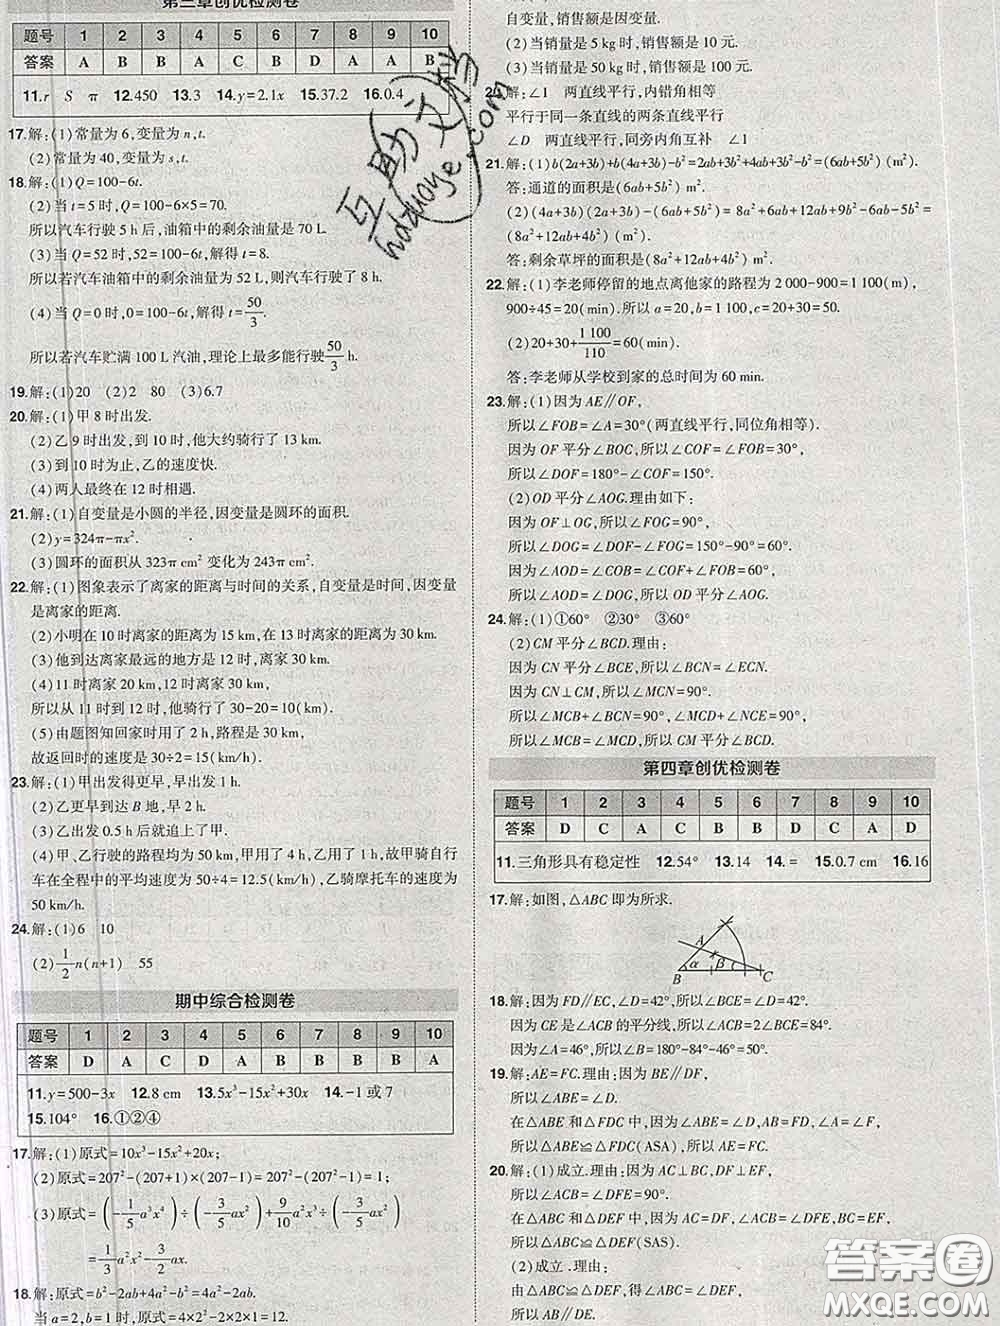 第三章创优检测卷
题号 1 2 3 4 5 6 7 8 9 10
答案 A B B A C B D A A B
11.r S π 12.450 13.3 14.y=2.1x 15.37.2 16.0.4
17.解:(1)常量为6,变量为n,t.
(2)常量为40,变量为s,t.
18.解:(1)Q=100-6t.
(2)当t=5时,Q=100-6×5=70.
所以汽车行驶5 h后,油箱中的剩余油量是70 L.
(3)当Q=52时,52=100-6t,解得t=8.
所以若汽车油箱中的剩余油量为52 L,则汽车行驶了8 h.
(4)当Q=0时,0=100-6t,解得t=50/3.
所以若汽车贮满100 L汽油,理论上最多能行驶50/3 h.
19.解:(1)20 (2)2 80 (3)6.7
20.解:(1)甲8时出发.
(2)乙9时出发,到10时,他大约骑行了13 km.
(3)到10时为止,乙的速度快.
(4)两人最终在12时相遇.
21.解:(1)自变量是小圆的半径,因变量是圆环的面积.
(2)y=324π-πx².
(3)圆环的面积从323π cm²变化为243π cm².
22.解:(1)图象表示了离家的距离与时间的关系,自变量是时间,因变量
是离家的距离.
(2)小明在10时离家的距离为15 km,在13时离家的距离为30 km.
(3)他到达离家最远的地方是12时,离家30 km.
(4)11时离家20 km,12时离家30 km,
所以从11时到12时,他骑行了30-20=10(km).
(5)由题图知回家时用了2 h,路程是30 km,
故返回时的速度是30÷2=15(km/h).
23.解:(1)甲出发得更早,早出发1 h.
(2)乙更早到达B地,早了2 h.
(3)乙出发0.5 h后就追上了甲.
(4)甲、乙行驶的路程均为50 km,甲用了4 h,乙用了1 h,故甲骑自行
车在全程中的平均速度为50÷4=12.5(km/h),乙骑摩托车的速度为
50 km/h.
24.解:(1)6 10
(2)1/2n(n+1) 55
期中综合检测卷
题号 1 2 3 4 5 6 7 8 9 10
答案 D A C D A B B B B A
11.y=500-3x 12.8 cm 13.5x³-15x²+30x 14.-1或7
15.104° 16.①②④
17.解:(1)原式=10x³-15x²+20x;
(2)原式=207²-(207+1)×(207-1)=207²-(207²-1)=1;
(3)原式=(-1/5a³x⁴)÷(-3/5ax²)+9/10a²x³÷(-3/5ax²)
=1/3a²x²-3/2ax.
18.解:原式=b²-2ab+4a²-b²=4a²-2ab.
当a=2,b=1时,原式=4×2²-2×2×1=12.
自变量,销售额是因变量.
(2)当销量是5 kg时,销售额是10元.
(3)当销量是50 kg时,销售额是100元.
20.解:∠1 两直线平行,内错角相等
平行于同一条直线的两条直线平行
∠D 两直线平行,同旁内角互补 ∠1
21.解:(1)b(2a+3b)+b(4a+3b)-b²=2ab+3b²+4ab+3b²-b²=(6ab+5b²)(m²).
答:通道的面积是(6ab+5b²)m².
(2)(4a+3b)(2a+3b)-(6ab+5b²)=8a²+6ab+12ab+9b²-6ab-5b²=
(8a²+12ab+4b²)(m²).
答:剩余草坪的面积是(8a²+12ab+4b²)m².
22.解:(1)李老师停留的地点离他家的路程为2 000-900=1 100(m),
900÷45=20(min).所以a=20,b=1 100,c=20+30=50.
(2)20+30+1 100/110=60(min).
答:李老师从学校到家的总时间为60 min.
23.解:(1)因为AE∥OF,
所以∠FOB=∠A=30°(两直线平行,同位角相等).
因为OF平分∠BOC,所以∠COF=∠FOB=30°,
所以∠DOF=180°-∠COF=150°.
(2)OD平分∠AOG.理由如下:
因为OF⊥OG,所以∠FOG=90°,
所以∠DOG=∠DOF-∠FOG=150°-90°=60°.
因为∠AOD=∠COB=∠COF+∠FOB=60°,
所以∠AOD=∠DOG,所以OD平分∠AOG.
24.解:(1)①60° ②30° ③60°
(2)CM平分∠BCD.理由:
因为CN平分∠BCE,所以∠BCN=∠ECN.
因为CN⊥CM,所以∠MCN=90°,
所以∠MCB+∠BCN=90°,∠MCD+∠NCE=90°,
所以∠MCB=∠MCD,所以CM平分∠BCD.
第四章创优检测卷
题号 1 2 3 4 5 6 7 8 9 10
答案 D C A C C B D C A D
11.三角形具有稳定性 12.54° 13.14 14.= 15.0.7 cm 16.16
17.解:如图,△ABC即为所求.
A
B α β C
18.解:因为FD∥EC,∠D=42°,所以∠BCE=∠D=42°.
因为CE是∠ACB的平分线,所以∠ACB=2∠BCE=84°.
因为∠A=46°,所以∠B=180°-84°-46°=50°.
19.解:AE=FC.理由:因为BE∥DF,
所以∠ABE=∠D.
在△ABE和△FDC中,因为∠ABE=∠D,AB=FD,∠A=∠F,
所以△ABE≌△FDC(ASA),所以AE=FC.
20.解:(1)成立.理由:因为AC⊥BC,DF⊥EF,
所以∠ACB=∠DFE=90°.
在△ABC和△DEF中,因为AC=DF,∠ACB=∠DFE,BC=EF,
所以△ABC≌△DEF(SAS).
(2)成立.理由:
由△ABC≌△DEF,得∠ABC=∠DEF,
所以AB∥DE.
互助文档
hdzuoye.com
答案圈
MXQE.COM